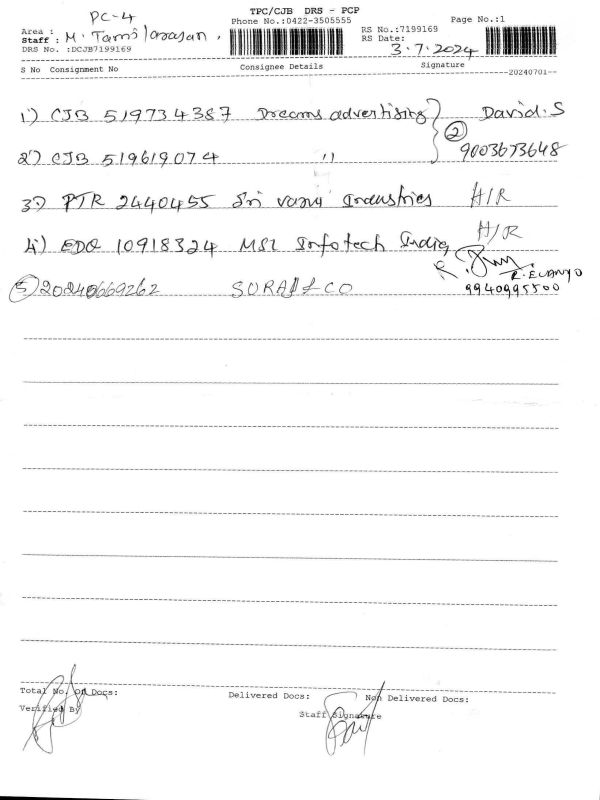 PC-4
TPC/CJB DRS - PCP
Phone No.:0422-3505555
Page No.:1
Area :
Staff : M. Tamilarasan.
RS No.:7199169
RS Date:
3.7.2024
DRS No. :DCJB7199169
S No Consignment No Consignee Details Signature
20240701
1) CJB 519734387 Dreams advertising } (2) David.S
2) CJB 519619074 " 9003673648
3) PTR 2440455 Sri vani Industries H/R
4) EDQ 10918324 MSL Infotech India H/R
R.
9940995500
5 20240669262 SURAJ & CO
Total No. Of Docs: Delivered Docs: Non Delivered Docs:
Verified By
Staff Signature